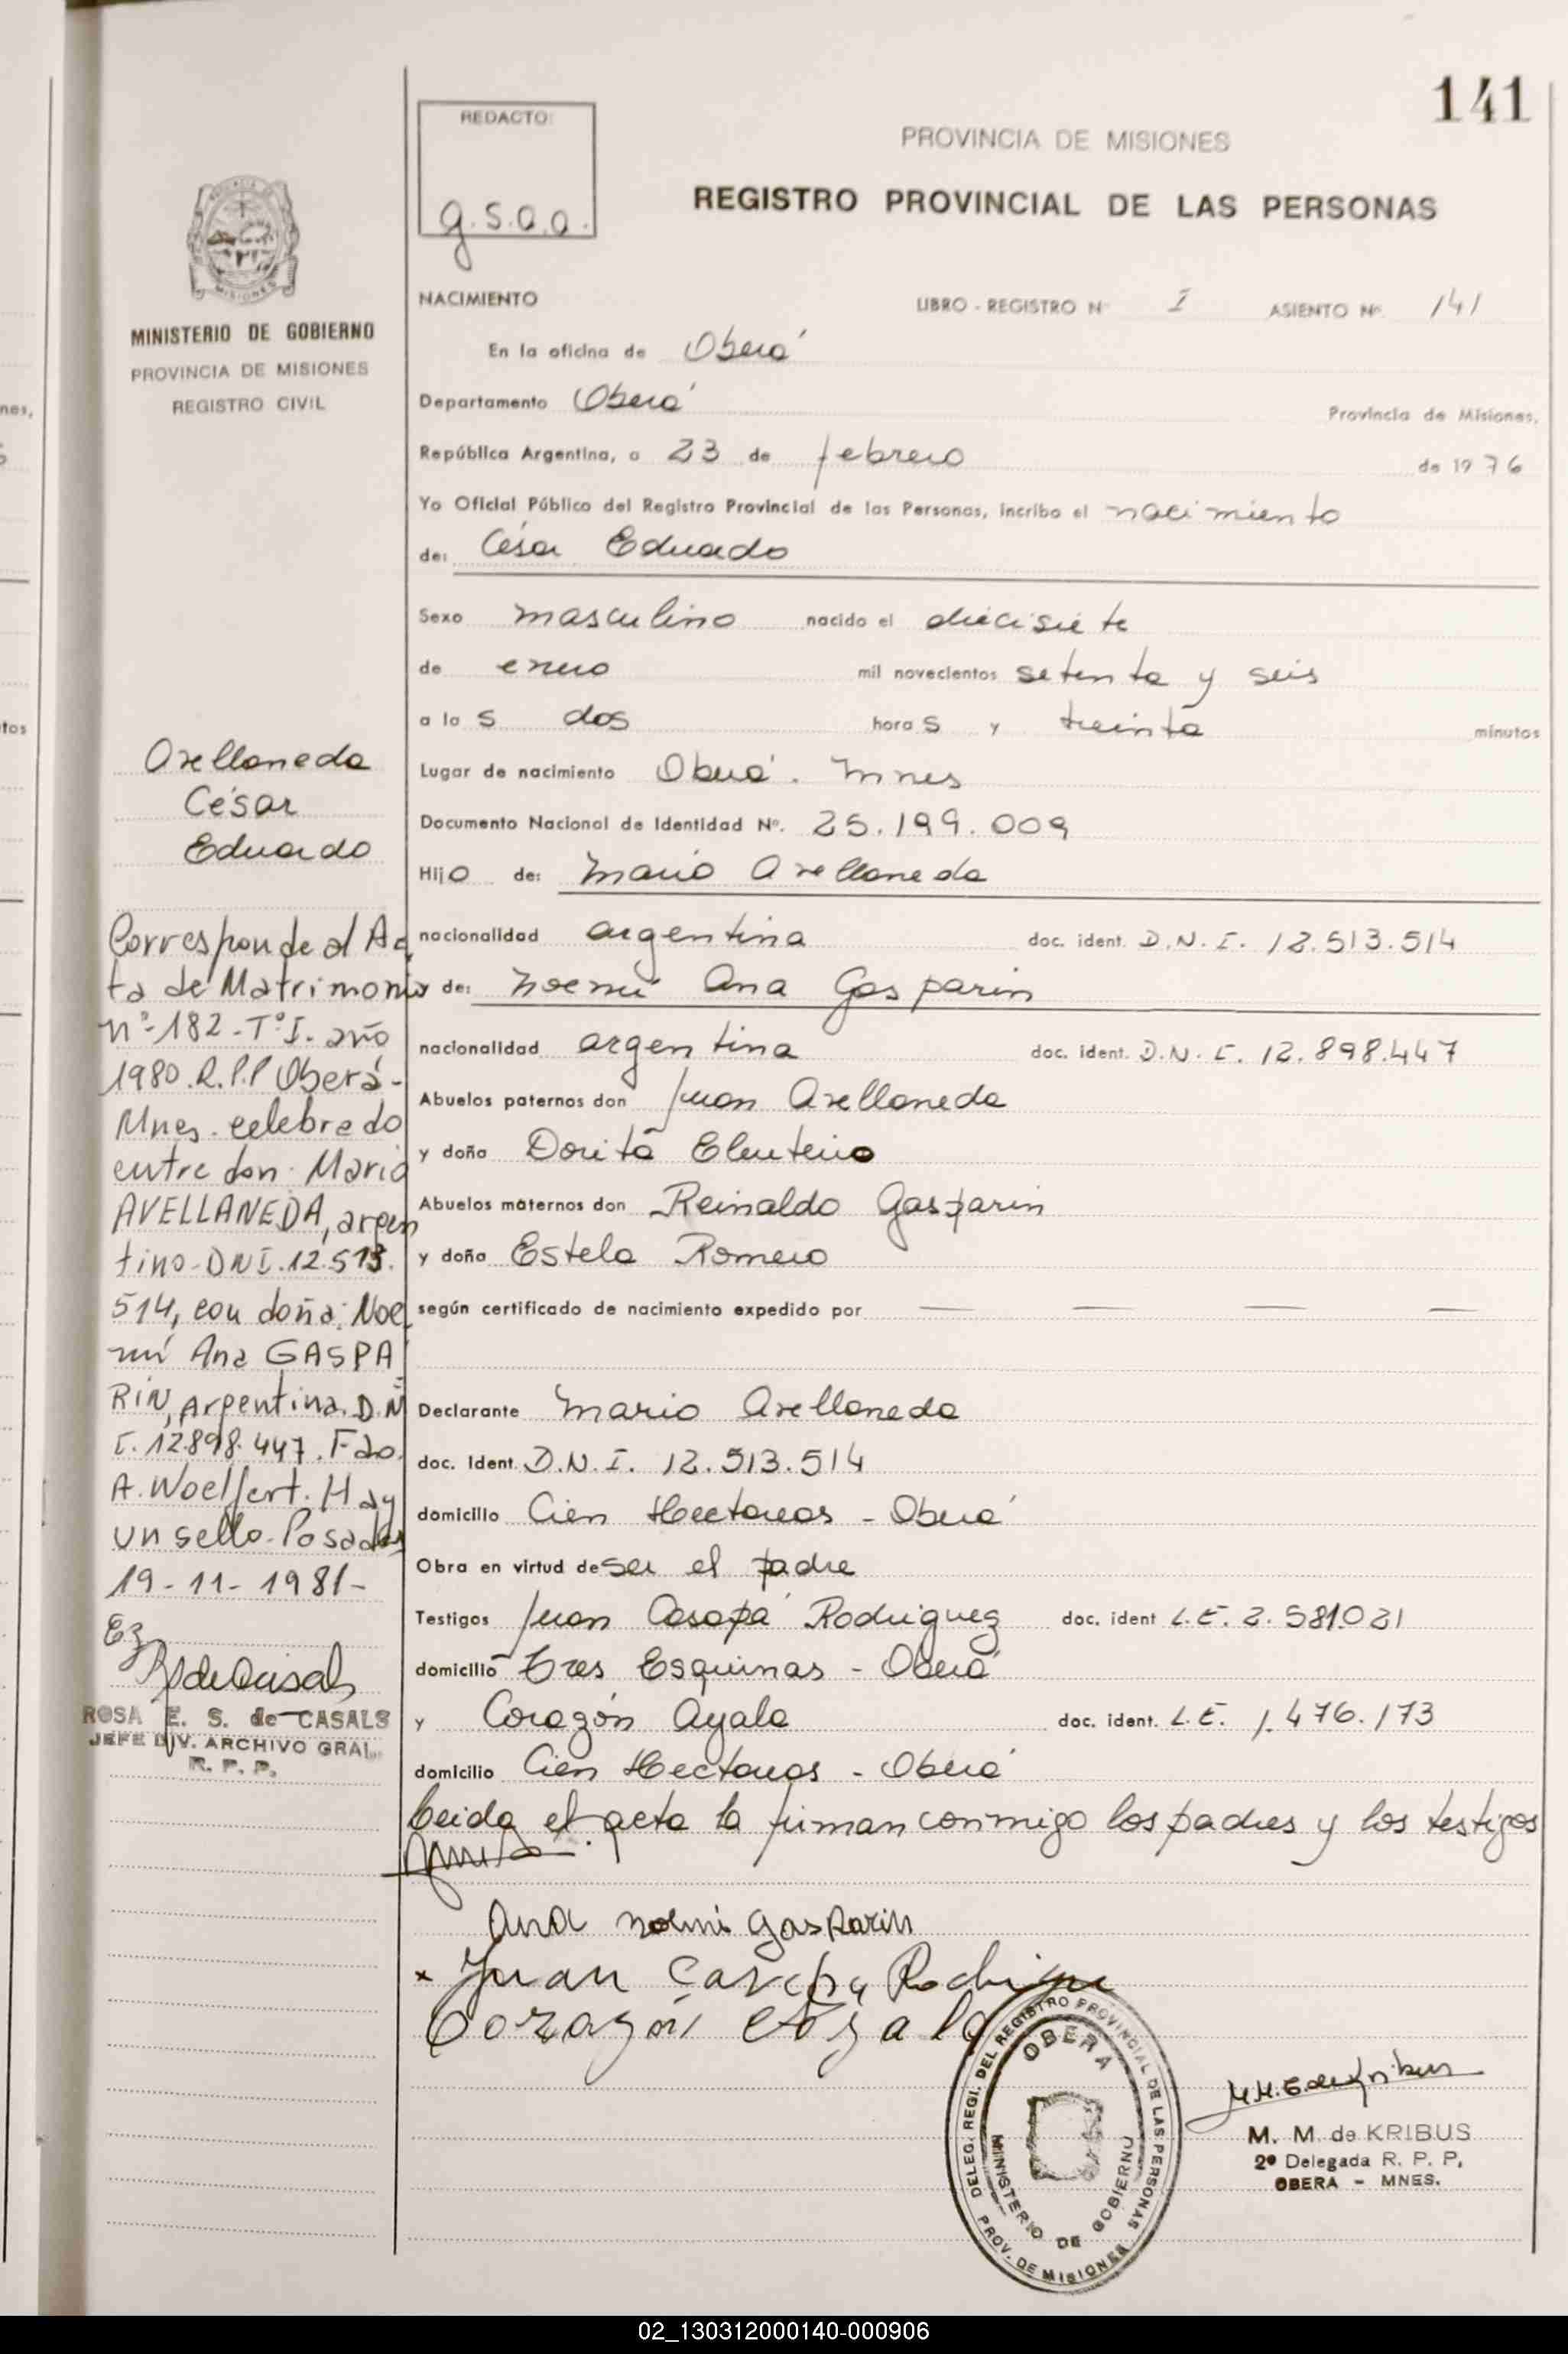 141
REDACTO:
g.s.a.a.
PROVINCIA DE MISIONES
REGISTRO PROVINCIAL DE LAS PERSONAS
MINISTERIO DE GOBIERNO
PROVINCIA DE MISIONES
REGISTRO CIVIL
NACIMIENTO LIBRO - REGISTRO Nº I ASIENTO Nº 141
En la oficina de Oberá
Departamento Oberá Provincia de Misiones,
República Argentina, a 23 de febrero de 1976
Yo Oficial Público del Registro Provincial de las Personas, incribo el nacimiento
de: César Eduardo
Sexo masculino nacido el diecisiete
de enero mil novecientos setenta y seis
a las dos horas y treinta minutos
Lugar de nacimiento Oberá. Mnes
Documento Nacional de Identidad Nº. 25.199.009
Hijo de: Mario Avellaneda
nacionalidad argentina doc. ident. D.N.I. 12.513.514
y de: Noemí Ana Gasparin
nacionalidad argentina doc. ident. D.N.I. 12.898.447
Abuelos paternos don Juan Avellaneda
y doña Dorita Eleuterio
Abuelos maternos don Reinaldo Gasparin
y doña Estela Romero
según certificado de nacimiento expedido por — — — —
Declarante Mario Avellaneda
doc. ident. D.N.I. 12.513.514
domicilio Cien Hectareas - Oberá
Obra en virtud de ser el padre
Testigos Juan Casapá Rodriguez doc. ident L.E. 2.581.021
domicilio Tres Esquinas - Oberá
y Corazón Ayala doc. ident. L.E. 1.476.173
domicilio Cien Hectareas - Oberá
Leida el acta la firman conmigo los padres y los testigos
Ana Noemi Gasparin
x Juan Rodrigu
Corazón Ayala
Avellaneda
César
Eduardo
Corresponde al Ac
ta de Matrimonio
nº-182-TºI. año
1980.R.P.P Oberá-
Mnes. celebrado
entre don Mario
AVELLANEDA, argen
tino-DNI.12.513.
514, con doña: Noe
mí Ana GASPA
RIN, Argentina. D.N
I.12.898.447. Fdo.
A. Woelfert. Hay
un sello-Posadas
19-11-1981-
ROSA E. S. de CASALS
JEFE DIV. ARCHIVO GRAL.
R. P. P.
DELEG. REGI. DEL REGISTRO PROVINCIAL DE LAS PERSONAS
PROV. DE MISIONES
OBERA
MINISTERIO DE GOBIERNO
M. M. de KRIBUS
2º Delegada R. P. P.
OBERA - MNES.
02_130312000140-000906